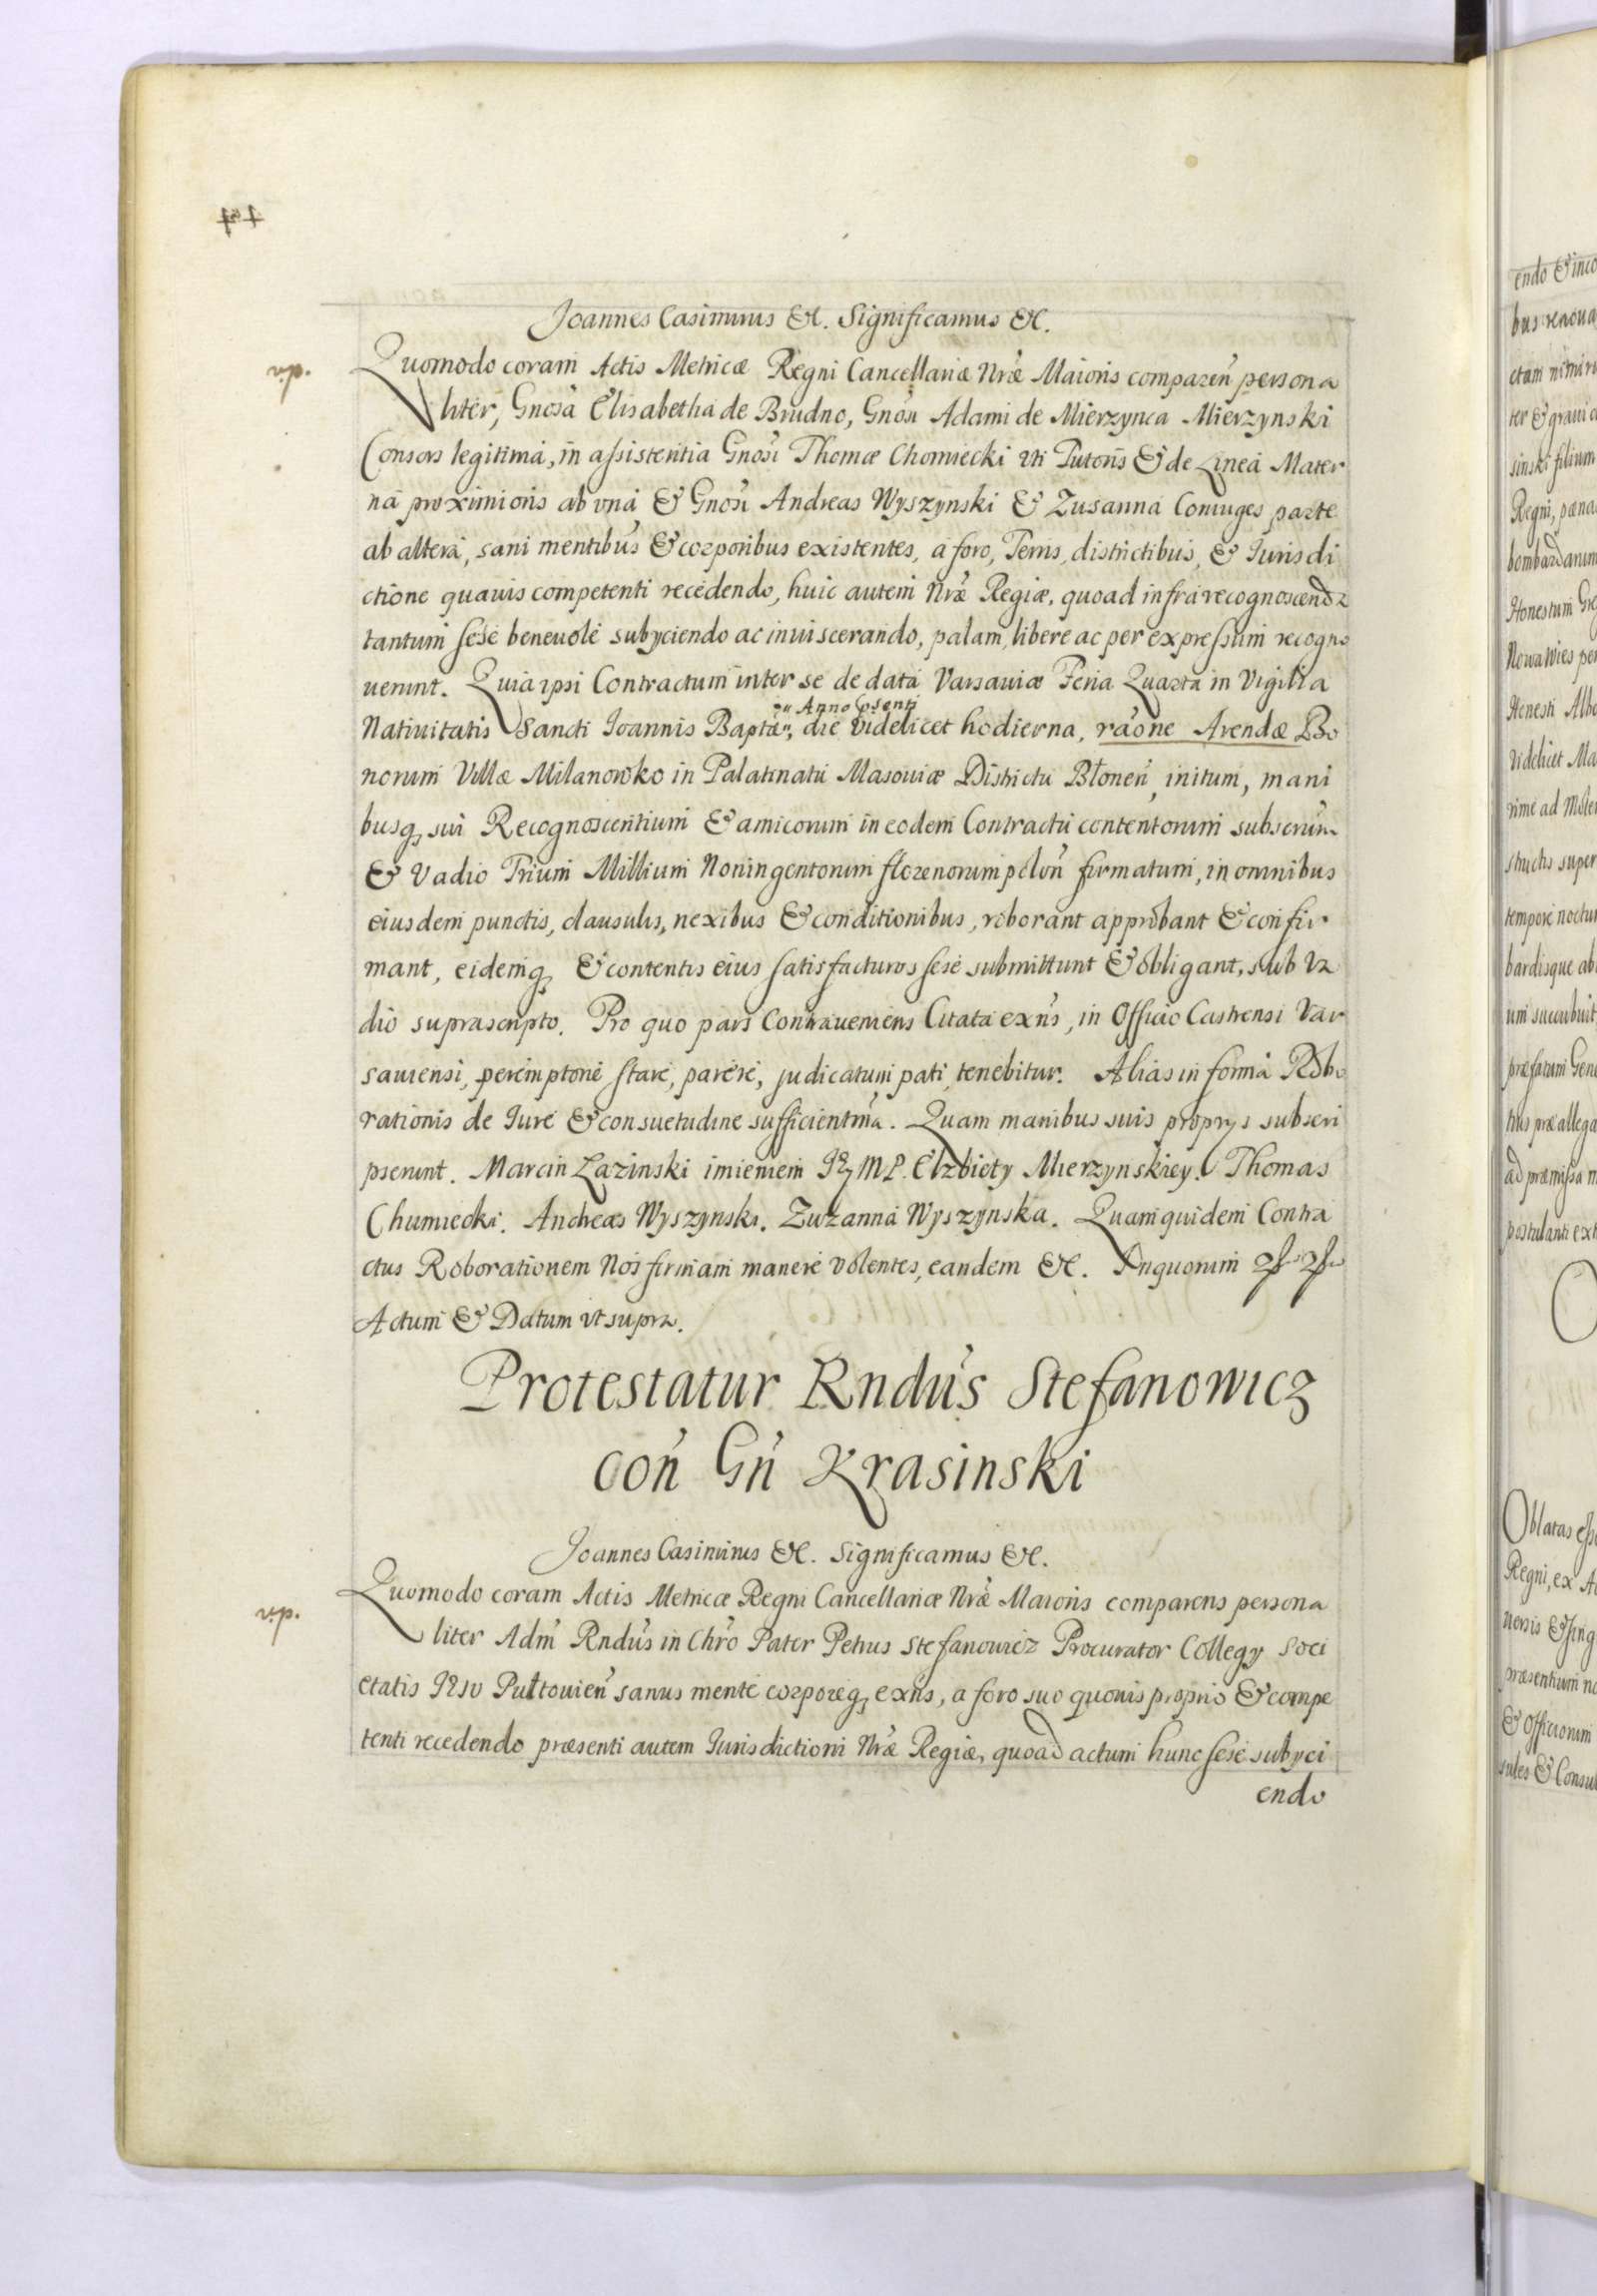 Joannes Casimirus &c. Significamus &c.
Quomodo coram Actis Metricæ Regni Cancellariæ Nræ Maioris comparen̄ persona
liter, Gnosa Elisabetha de Brudno, Gnosi Adami de Mierzynca Mierzynski
Consors legitima, in assistentia Gnosi Thomæ Chomiecki uti Tutoris & de Linea Mater
na proximioris ab una & Gnosi Andreas Wyszynski & Zusanna Coniuges parte
ab altera, sani mentibus & corporibus existentes, a foro, Terris, districtibus, & Iurisdi
ctione quauis competenti recedendo, huic autem Nræ Regiæ, quoad infra recognoscenda
tantum sese beneuole subyciendo ac inuiscerando, palam, libere ac per expressum recogno
uerunt. Quia ipsi Contractum inter se de data Varsauiæ Feria Quarta in Vigilia
Anno psenti
Natiuitatis Sancti Joannis Baptæ, die videlicet hodierna, raone Arendæ Bo
norum Villæ Milanowko in Palatinatu Masouiæ Districtu Błonen̄, initum, mani
busq, sui Recognoscentium & amicorum in eodem Contractu contentorum subscrium
& Vadio Trium Millium Noningentorum florenorum polon̄ firmatum, in omnibus
eiusdem punctis, clausulis, nexibus & conditionibus, roborant approbant & confir
mant, eidemq, & contentis eius satisfacturos sese submittunt & obligant, sub Va
dio suprascripto. Pro quo pars Contraueniens Citata exns, in Officio Castrensi Var
sauiensi, peremptorie stare, parere, judicatum pati tenebitur. Alias in forma Robo
rationis de Iure & consuetudine sufficientma. Quam manibus suis proprys subscri
pserunt. Marcin Lazinski imieniem Jey MP. Elzbiety Mierzynskiey. Thomas
Chumiecki. Andreas Wyszynski. Zuzanna Wyszynska. Quam quidem Contra
ctus Roborationem Nos firmam manere volentes, eandem &c. Inquorum
Actum & Datum ut supra.
Protestatur Rndus Stefanowicz
con̄ Gn̄ Krasinski
Joannes Casimirus &c. Significamus &c.
Quomodo coram Actis Metricæ Regni Cancellariæ Nræ Maioris comparens persona
liter Adm̄ Rndus in Chro Pater Petrus Stefanowicz Procurator Collegy Soci
etatis Jesu Pułtouien̄ sanus mente corporeq, exns, a foro suo quouis proprio & compe
tenti recedendo præsenti autem Iurisdictioni Nræ Regiæ, quoad actum hunc sese subyci
endo